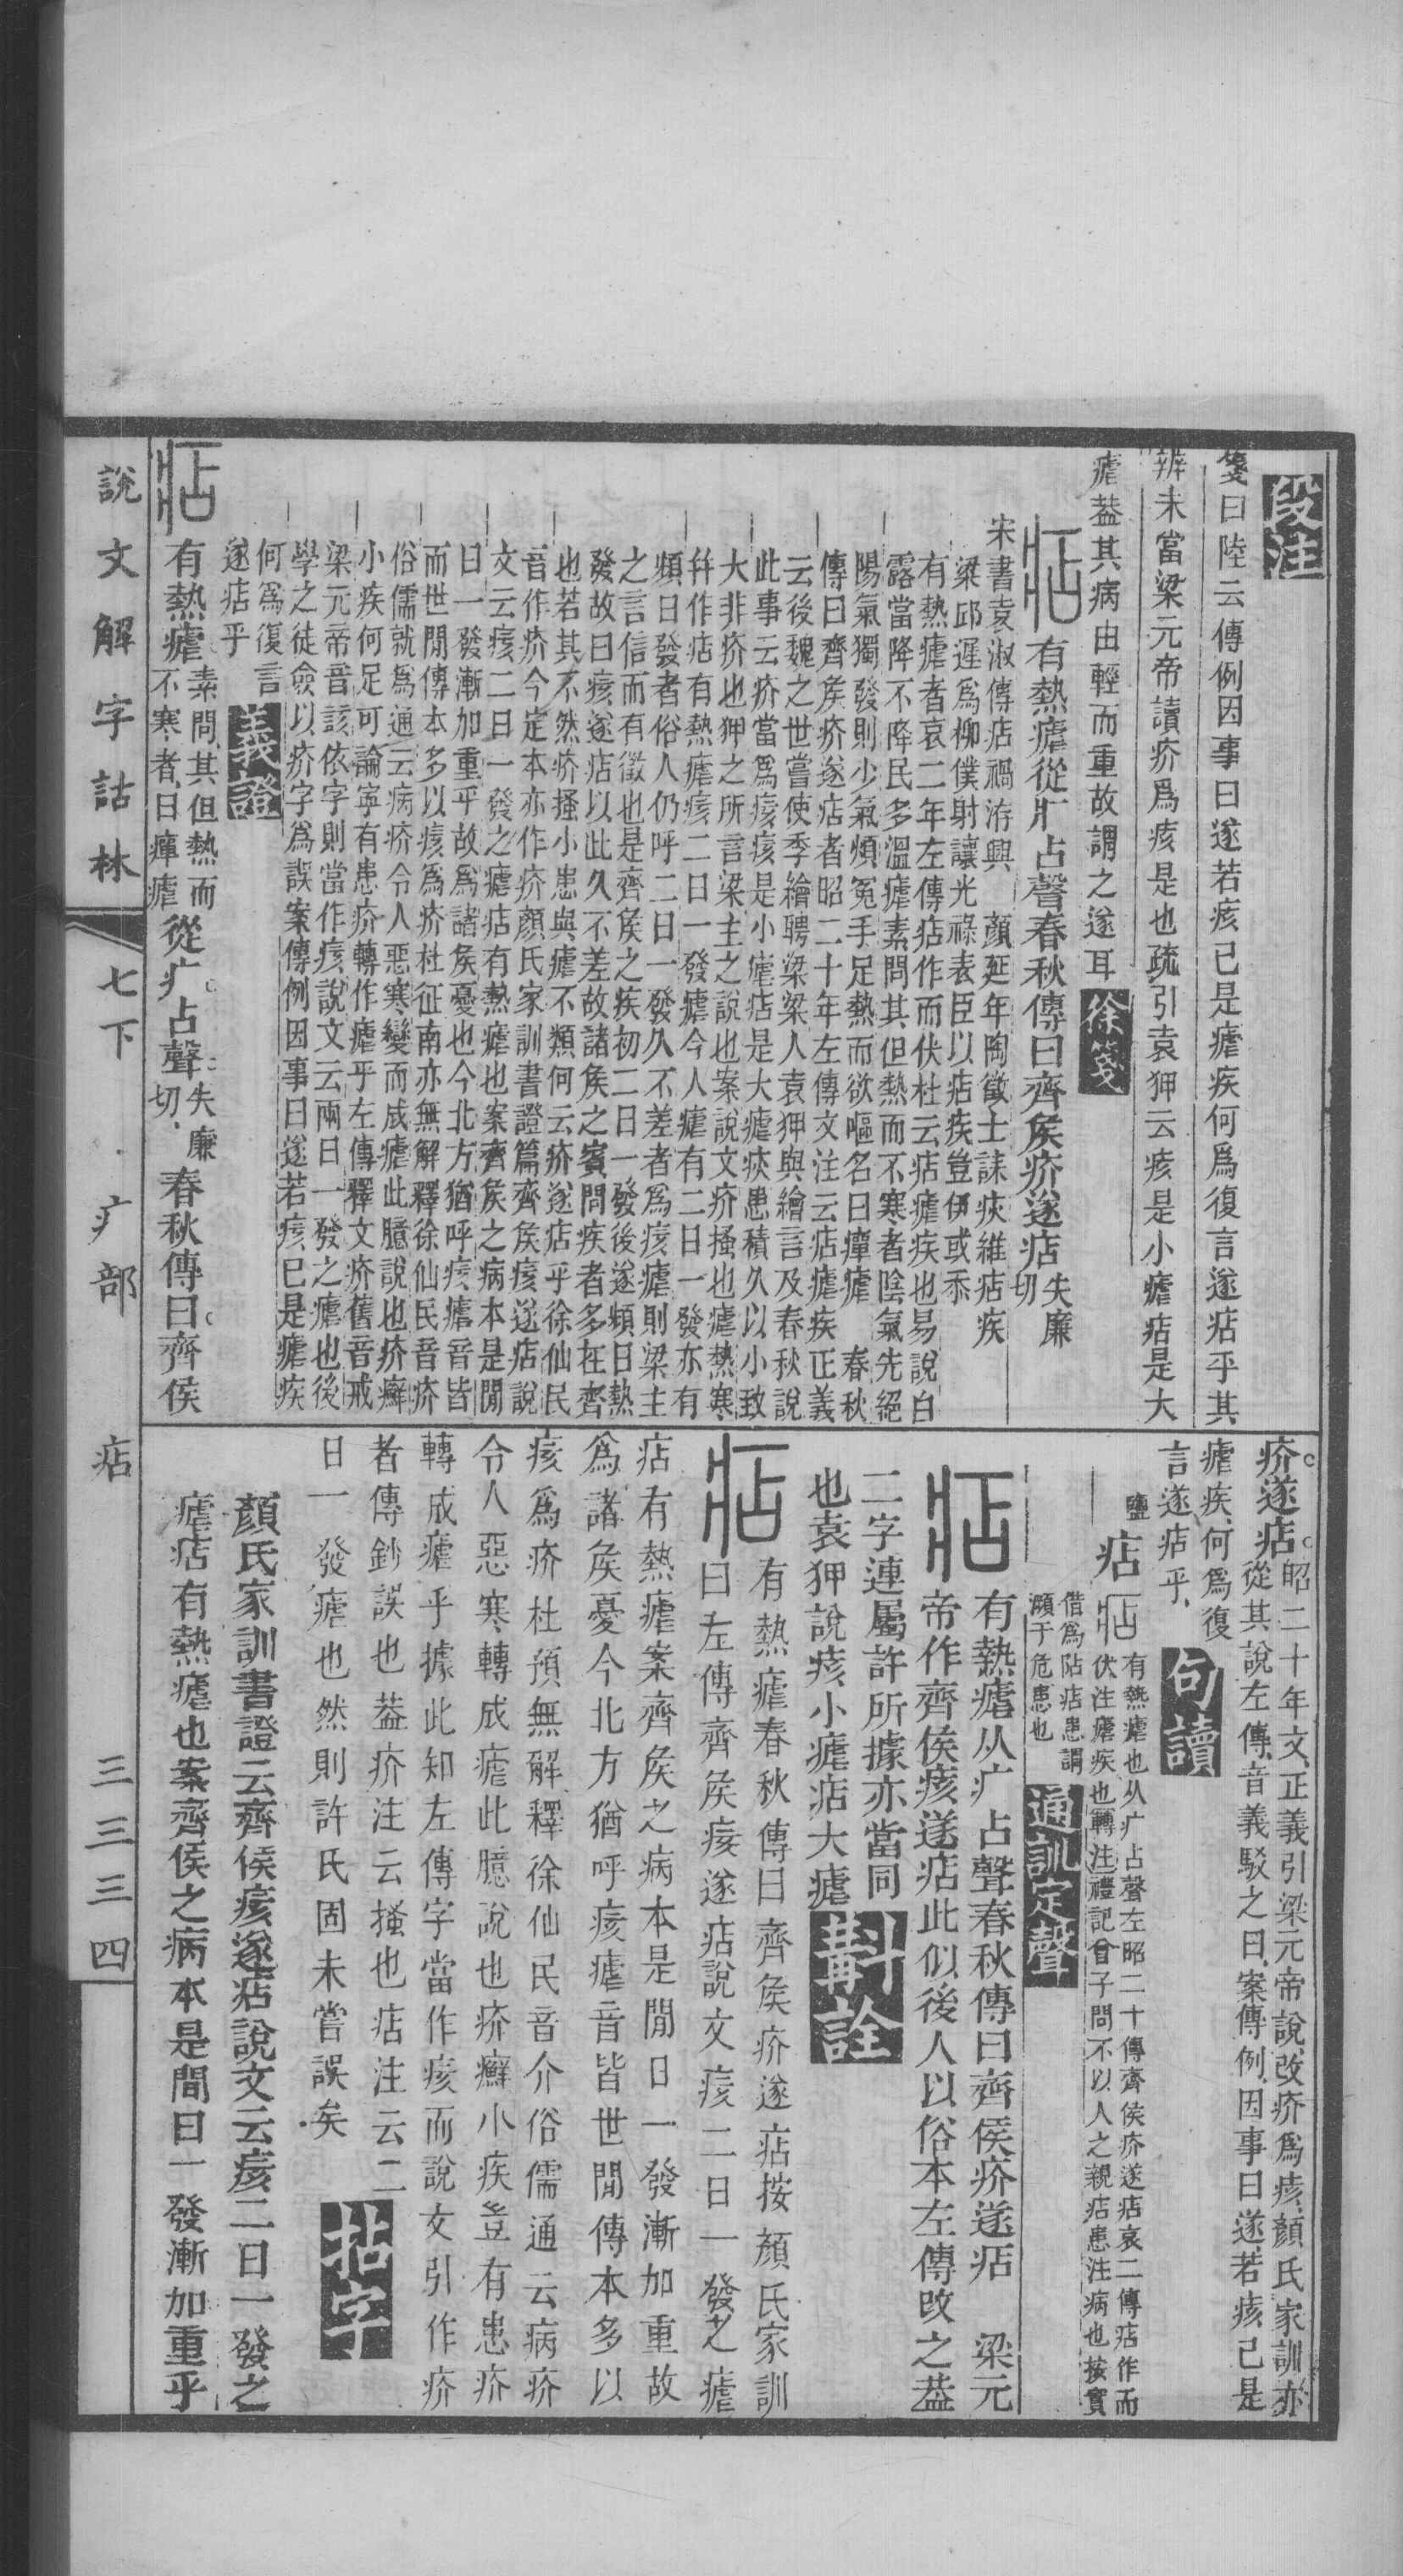 段注
箋曰陸云傳例因事曰遂若痎已是瘧疾何爲復言遂痁乎其
辨未當梁元帝讀疥爲痎是也疏引袁狎云痎是小瘧痁是大
瘧葢其病由輕而重故謂之遂耳徐箋
有熱瘧從疒占聲春秋傳曰齊矦疥遂痁失廉切
宋書袁淑傳痁禍洊興　顔延年陶徵士誄痎維痁疾
梁邱遲爲柳僕射讓光祿表臣以痁疾豈伊或忝
有熱瘧者哀二年左傳痁作而伏杜云痁瘧疾也易說白
露當降不降民多溫瘧素問其但熱而不寒者陰氣先絕
陽氣獨發則少氣煩冤手足熱而欲嘔名曰癉瘧　春秋
傳曰齊矦疥遂痁者昭二十年左傳文注云痁瘧疾正義
云後魏之世嘗使季繪聘梁梁人袁狎與繪言及春秋說
此事云疥當爲痎痎是小瘧痁是大瘧痎患積久以小致
大非疥也狎之所言梁主之說也案說文疥搔也瘧熱寒
幷作痁有熱瘧痎二日一發瘧今人瘧有二日一發亦有
頻日發者俗人仍呼二日一發久不差者爲痎瘧則梁主
之言信而有徵也是齊矦之疾初二日一發後遂頻日熱
發故曰痎遂痁以此久不差故諸矦之賓問疾者多在齊
也若其不然疥搔小患與瘧不類何云疥遂痁乎徐仙民
音作疥今定本亦作疥顏氏家訓書證篇齊矦痎遂痁說
文云痎二日一發之瘧痁有熱瘧也案齊矦之病本是閒
日一發漸加重乎故爲諸矦憂也今北方猶呼痎瘧音皆
而世閒傳本多以痎爲疥杜征南亦無解釋徐仙民音疥
俗儒就爲通云病疥令人惡寒變而成瘧此臆說也疥癬
小疾何足可論寧有患疥轉作瘧乎左傳釋文疥舊音戒
梁元帝音該依字則當作痎說文云兩日一發之瘧也後
學之徒僉以疥字爲誤案傳例因事曰遂若痎已是瘧疾
何爲復言
遂痁乎義證
有熱瘧素問其但熱而不寒者曰癉瘧從疒占聲失廉切春秋傳曰齊侯
說文解字詁林　七下　疒部　痁　三三三四
疥遂痁昭二十年文正義引梁元帝說改疥爲痎顏氏家訓亦
從其說左傳音義駁之曰案傳例因事曰遂若痎已是
瘧疾何爲復
言遂痁乎句讀
鹽痁有熱瘧也从疒占聲左昭二十傳齊侯疥遂痁哀二傳痁作而
伏注瘧疾也轉注禮記曾子問不以人之親痁患注病也按實
借爲阽痁患謂
瀕于危患也通訓定聲
有熱瘧从疒占聲春秋傳曰齊侯疥遂痁　梁元
帝作齊侯痎遂痁此似後人以俗本左傳改之葢
二字連屬許所據亦當同
也袁狎說痎小瘧痁大瘧斠詮
有熱瘧春秋傳曰齊矦疥遂痁按顏氏家訓
曰左傳齊矦痎遂痁說文痎二日一發之瘧
痁有熱瘧案齊矦之病本是閒日一發漸加重故
爲諸矦憂今北方猶呼痎瘧音皆世閒傳本多以
痎爲疥杜預無解釋徐仙民音介俗儒通云病疥
令人惡寒轉成瘧此臆說也疥癬小疾豈有患疥
轉成瘧乎據此知左傳字當作痎而說文引作疥
者傳鈔誤也葢疥注云搔也痁注云二
日一發瘧也然則許氏固未嘗誤矣拈字
顏氏家訓書證云齊侯痎遂痁說文云痎二日一發之
瘧痁有熱瘧也案齊侯之病本是間日一發漸加重乎